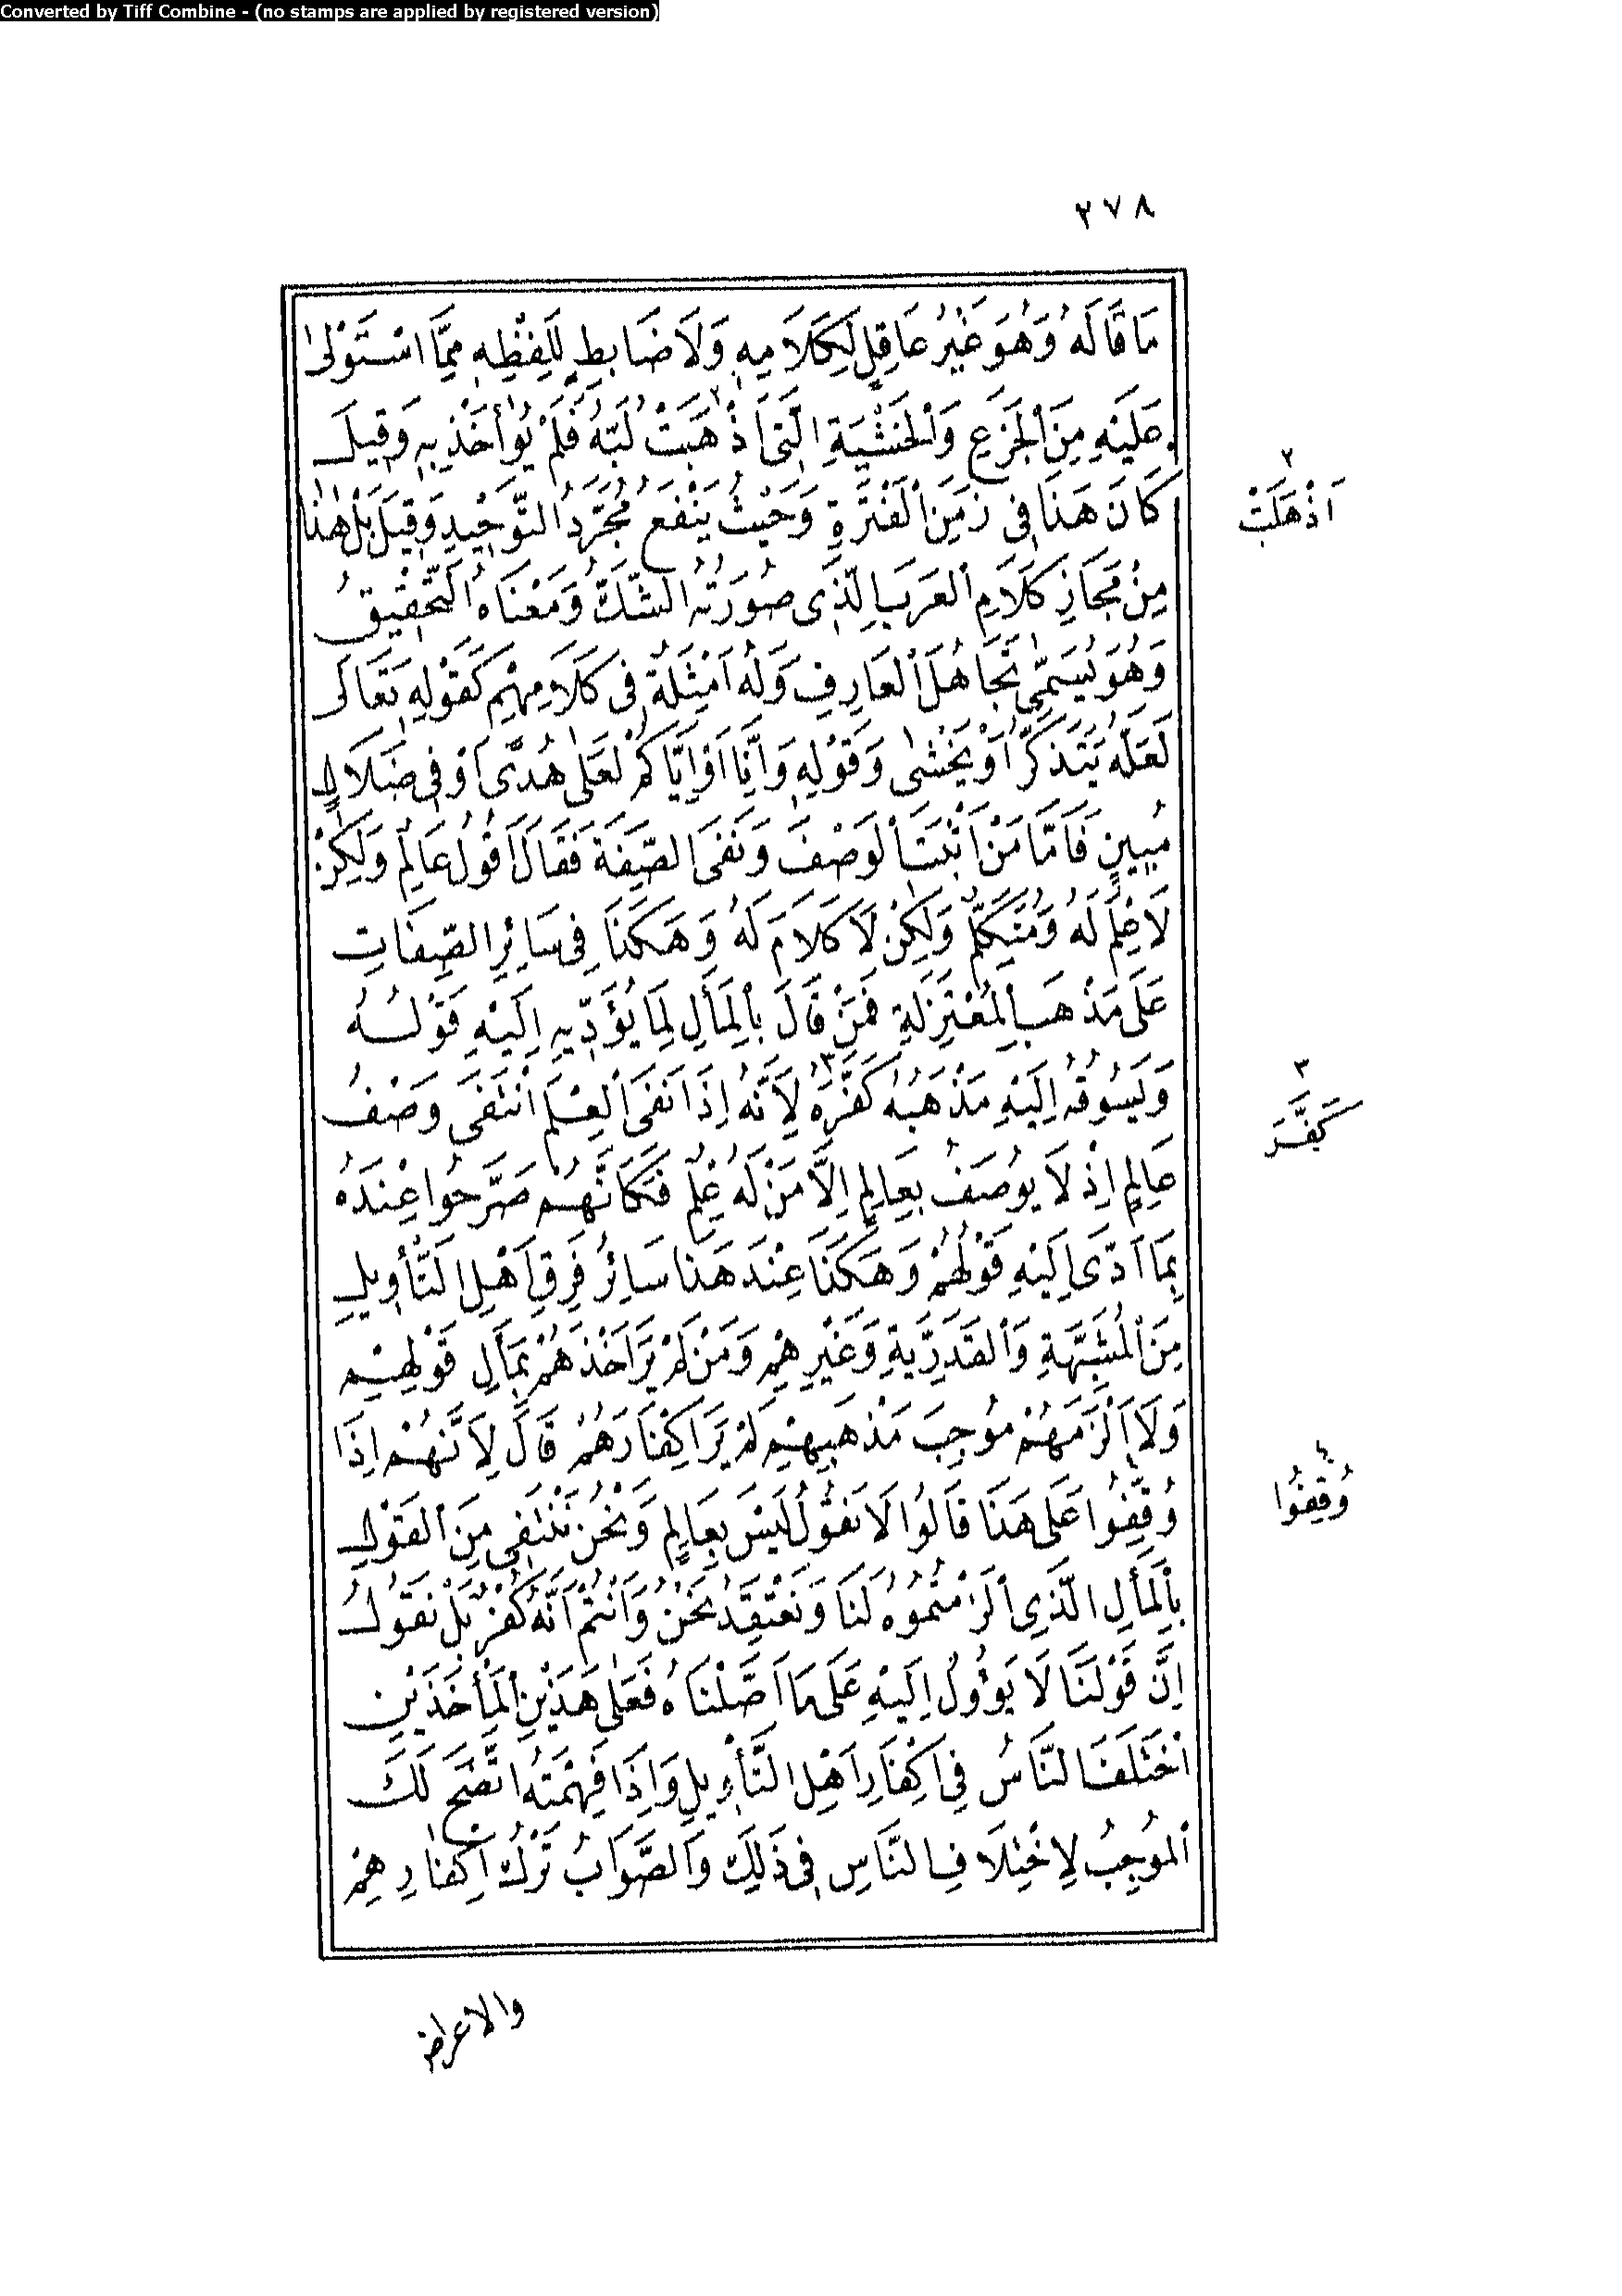 Converted by Tiff Combine - (no stamps are applied by registered version)
٢٧٨
مَا قَالَهُ وَهُوَ غَيْرُ عَاقِلٍ لِكَلَامِهِ وَلَا ضَابِطٍ لِلَفْظِهِ مِمَّا اسْتَوْلَى
عَلَيْهِ مِنَ الْجَزَعِ وَالْخَشْيَةِ الَّتِى أَذْهَبَتْ ٢ لُبَّهُ فَلَمْ يُؤَاخَذْ بِهِ وَقِيلَ
كَانَ هَذَا فِى زَمَنِ الْفَتْرَةِ وَحَيْثُ يَنْفَعُ مُجَرَّدُ التَّوْحِيدِ وَقِيلَ بَلْ هٰذَا
٢ اَذْهَلَتْ
مِنْ مَجَازِ كَلَامِ الْعَرَبِ الَّذِى صُورَتُهُ الشَّكُّ وَمَعْنَاهُ التَّحْقِيقُ
وَهُوَ يُسَمَّى تَجَاهُلَ الْعَارِفِ وَلَهُ اَمْثِلَةٌ فِى كَلَامِهِمْ كَقَوْلِهِ تَعَالَى
لَعَلَّهُ يَتَذَكَّرُ اَوْ يَخْشٰى وَقَوْلِهِ وَاِنَّا اَوْ اِيَّاكُمْ لَعَلٰى هُدًى اَوْ فِى ضَلَالٍ
مُبِينٍ فَاَمَّا مَنْ اَثْبَتَ الْوَصْفَ وَنَفَى الصِّفَةَ فَقَالَ اَقُولُ عَالِمٌ وَلٰكِنْ
لَا عِلْمَ لَهُ وَمُتَكَلِّمٌ وَلٰكِنْ لَا كَلَامَ لَهُ وَهَكَذَا فِى سَائِرِ الصِّفَاتِ
عَلَى مَذْهَبِ الْمُعْتَزِلَةِ فَمَنْ قَالَ بِالْمَآلِ لِمَا يُؤَدِّيهِ اِلَيْهِ قَوْلُهُ
وَيَسُوقُهُ اِلَيْهِ مَذْهَبُهُ كَفَّرَهُ ٣ لِاَنَّهُ اِذَا نَفَى الْعِلْمَ انْتَفَى وَصْفُ
٣ كَفَّرَ
عَالِمٍ اِذْ لَا يُوصَفُ بِعَالِمٍ اِلَّا مَنْ لَهُ عِلْمٌ فَكَاَنَّهُمْ صَرَّحُوا عِنْدَهُ
بِمَا اَدَّى اِلَيْهِ قَوْلُهُمْ وَهَكَذَا عِنْدَ هَذَا سَائِرُ فِرَقِ اَهْلِ التَّأْوِيلِ
مِنَ الْمُشَبِّهَةِ وَالْقَدَرِيَّةِ وَغَيْرِهِمْ وَمَنْ لَمْ يَرَ اَخْذَهُمْ بِمَآلِ قَوْلِهِمْ
وَلَا اَلْزَمَهُمْ مُوجِبَ مَذْهَبِهِمْ لَمْ يَرَ اِكْفَارَهُمْ قَالَ لِاَنَّهُمْ اِذَا
وُقِّفُوا ٤ عَلَى هَذَا قَالُوا لَا نَقُولُ لَيْسَ بِعَالِمٍ وَنَحْنُ نَنْتَفِى مِنَ الْقَوْلِ
٤ وُقِفُوا
بِالْمَآلِ الَّذِى اَلْزَمْتُمُوهُ لَنَا وَنَعْتَقِدُ نَحْنُ وَاَنْتُمْ اَنَّهُ كُفْرٌ بَلْ نَقُولُ
اِنَّ قَوْلَنَا لَا يَؤُولُ اِلَيْهِ عَلَى مَا اَصَّلْنَاهُ فَعَلٰى هَذَيْنِ الْمَأْخَذَيْنِ
اخْتَلَفَ النَّاسُ فِى اِكْفَارِ اَهْلِ التَّأْوِيلِ وَاِذَا فَهِمْتَهُ اتَّضَحَ لَكَ
الْمُوجِبُ لِاخْتِلَافِ النَّاسِ فِى ذَلِكَ وَالصَّوَابُ تَرْكُ اِكْفَارِهِمْ
والاعراض